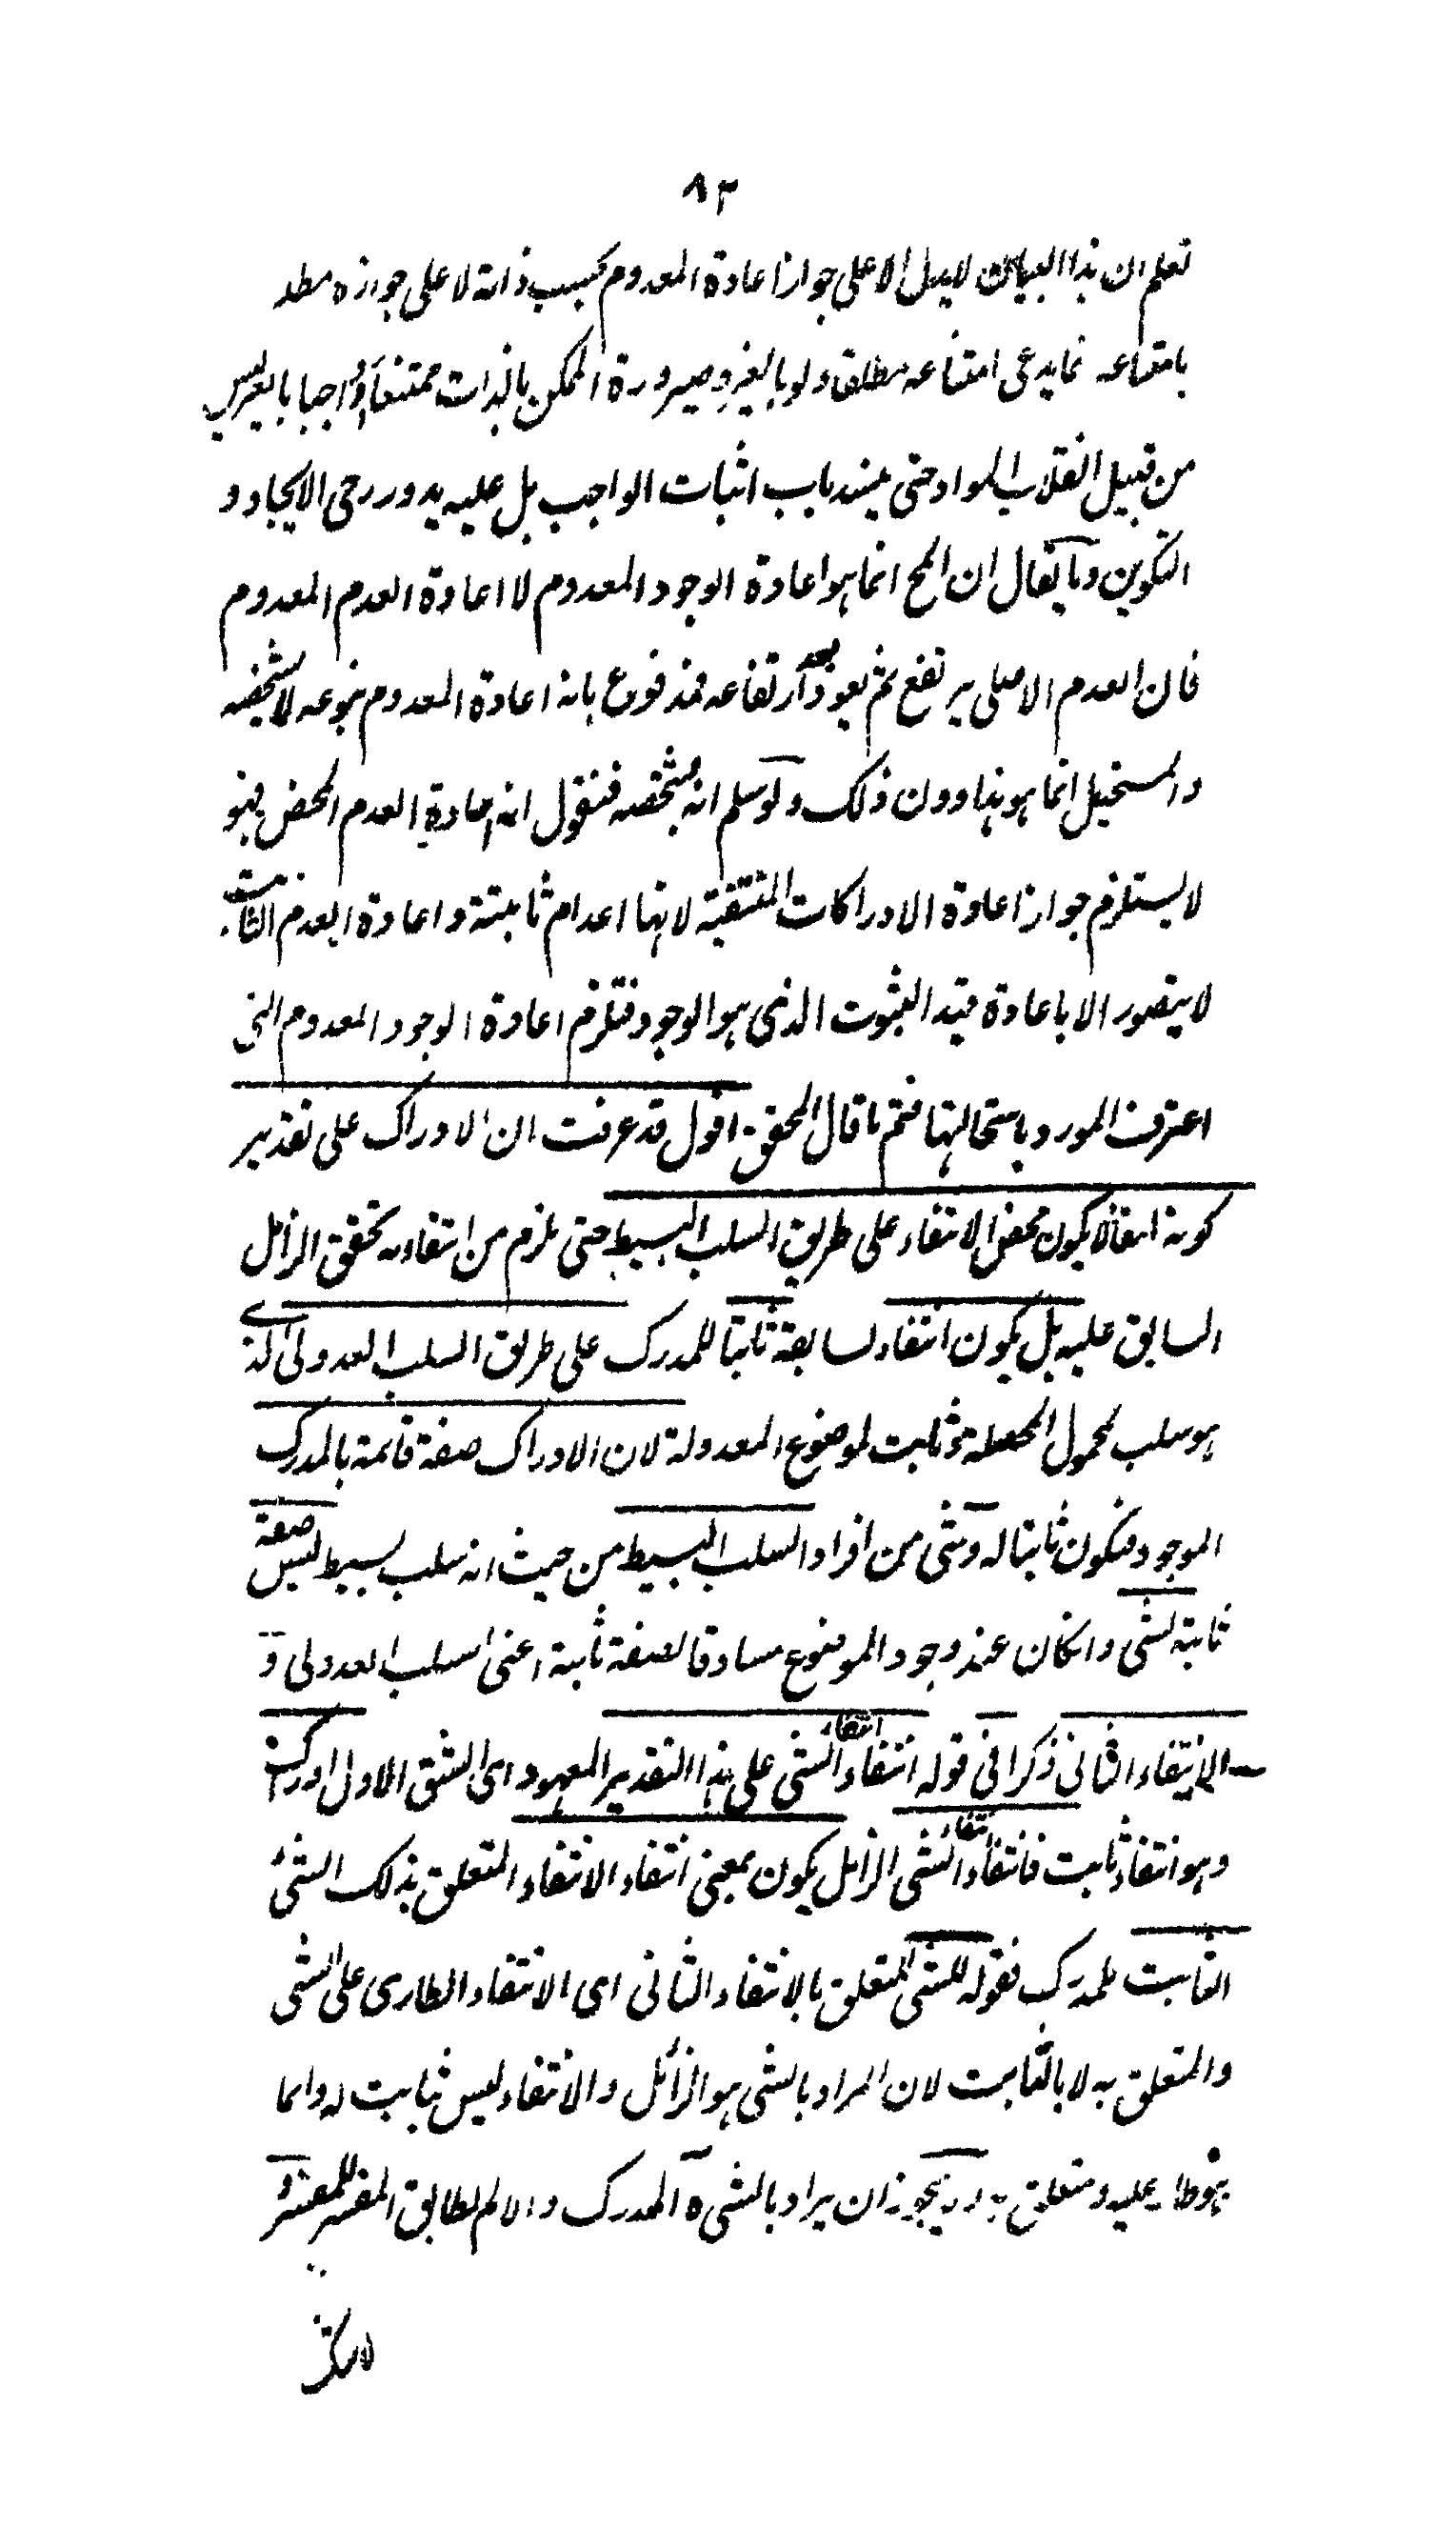 ٨٣
تعلم ان هذا البيان لا يدل الا على جواز اعادة المعدوم بحسب ذاته لا على جوازه مطلـ
بامتناعه انما يدعى امتناعه مطلقا ولو بالغير وصيرورة الممكن بالذات ممتنعا او واجبا بالغير ليس
من قبيل انقلاب المواد حتى ينسد باب اثبات الواجب بل عليه يدور رحى الايجاد و
التكوين وما يقال ان المح انما هو اعادة الوجود المعدوم لا اعادة العدم المعدوم
فان العدم الاصلى يرتفع ثم يعود بعد ارتفاعه فمدفوع بانه اعادة المعدوم بنوعه لا بشخصه
والمستحيل انما هو هذا دون ذلك ولو سلم انه بشخصه فنقول انه اعادة العدم المحض فهو
لا يستلزم جواز اعادة الادراكات المنتفية لانها اعدام ثابتة واعادة العدم الثابت
لا يتصور الا باعادة قيد الثبوت الذى هو الوجود فتلزم اعادة الوجود المعدوم التى
اعترف المورد باستحالتها فتم ما قال المحقق. اقول قد عرفت ان الادراك على تقدير
كونه انتفاء لا يكون محض الانتفاء على طريق السلب البسيط حتى يلزم من انتفاءه تحقق الزائل
السابق عليه بل يكون انتفاء لسابقه ثابتا للمدرك على طريق السلب العدولى الذى
هو سلب المحمول ثابت لموضوع المعدولة لان الادراك صفة قائمة بالمدرك
الموجود فتكون ثابتا له وشئ من افراد السلب البسيط من حيث انه سلب بسيط ليس صفة
ثابتة لشئ وانكان عند وجود الموضوع مساوقا لصفة ثابتة اعنى السلب العدولى و
الانتفاء الثانى ذكرا فى قوله انتفاء انتفاء الشئ على هذا التقدير المعهود اى الشق الاول ادراك
وهو انتفاء ثابت فانتفاء انتفاء الشئ الزائل يكون بمعنى انتفاء الانتفاء المتعلق بذلك الشئ
الثابت للمدرك فقوله للشئ المتعلق بالانتفاء الثانى اى الانتفاء الطارى على الشئ
والمتعلق به لا بالثابت لان المراد بالشئ هو الزائل والانتفاء ليس ثابت له وانما
هو طار عليه ومتعلق به ولا يجوز ان يراد بالشئ المدرك والا لم يطابق المفسر للمفسر و